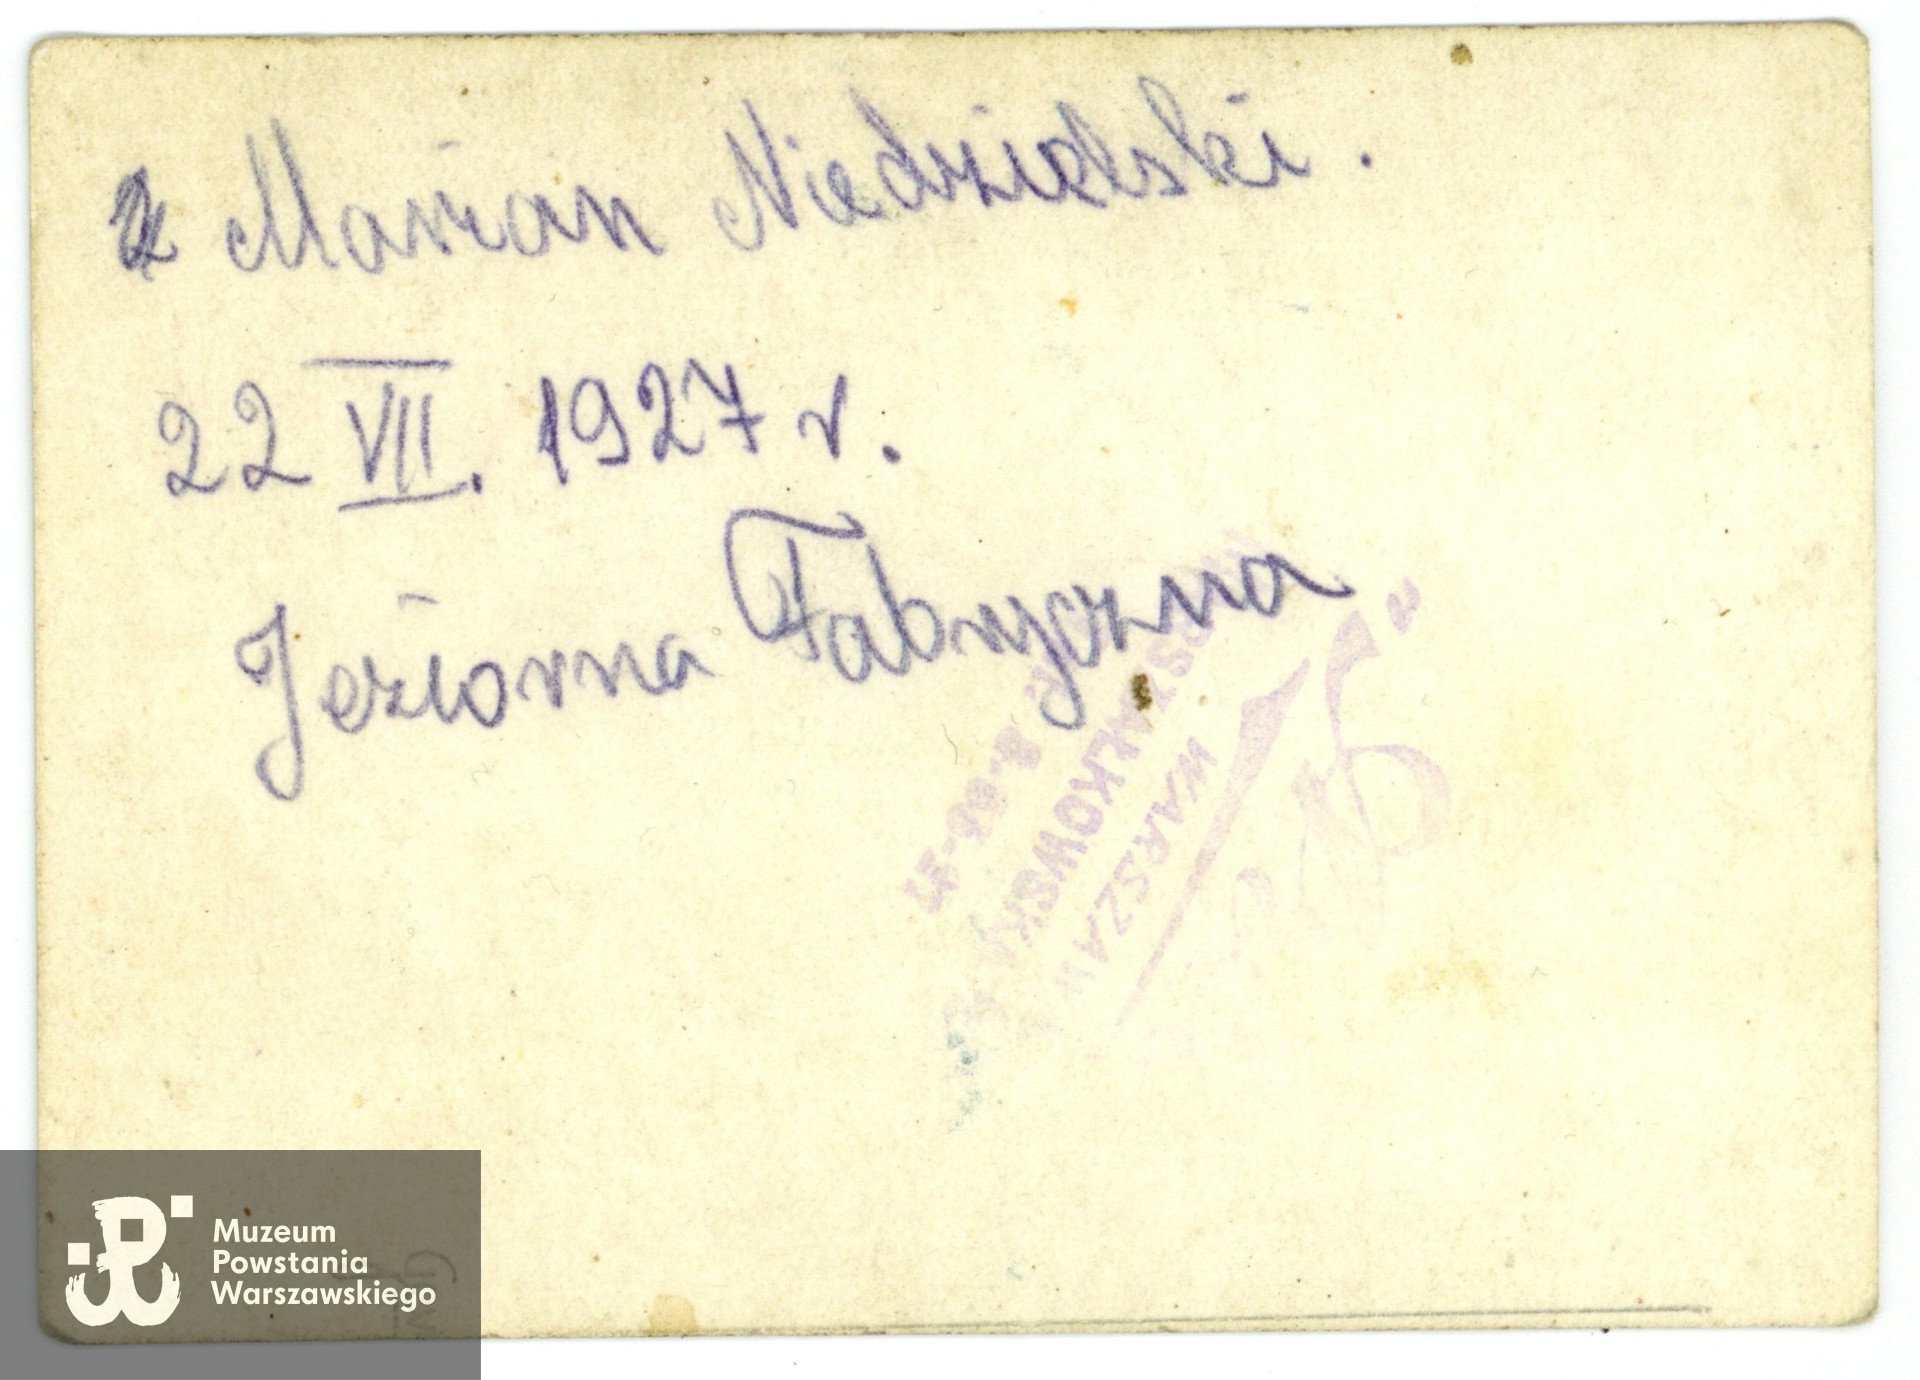 Marian Niedzielski.
22 VII. 1927 r.
Jeziorna Fabryczna
MARSZAŁKOWSKA
WARSZAW
Muzeum
Powstania
Warszawskiego